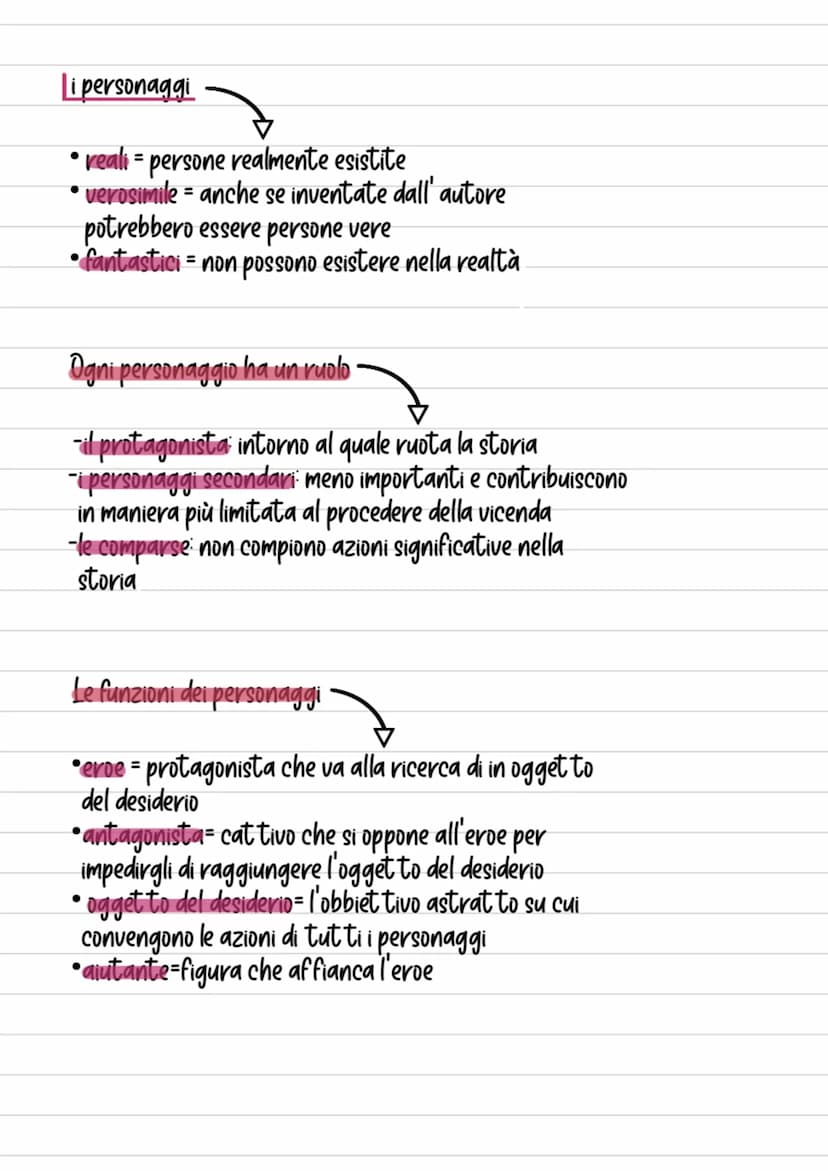 i personaggi
• reali = persone realmente esistite
• verosimile = anche se inventate dall' autore
potrebbero essere persone vere
• fantastici = non possono esistere nella realtà
Ogni personaggio ha un ruolo
-il protagonista: intorno al quale ruota la storia
-i personaggi secondari: meno importanti e contribuiscono
in maniera più limitata al procedere della vicenda
-le comparse: non compiono azioni significative nella
storia
Le funzioni dei personaggi
•eroe = protagonista che va alla ricerca di in oggetto
del desiderio
•antagonista= cattivo che si oppone all'eroe per
impedirgli di raggiungere l'oggetto del desiderio
• oggetto del desiderio= l'obbiettivo astratto su cui
convengono le azioni di tutti i personaggi
•aiutante=figura che affianca l'eroe